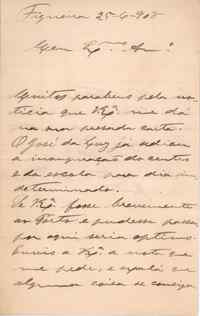 Figueira 25-6-908
Meu Exmo Amo
Muitos parabens pela no-
ticia que V. Exa me dá
na sua presada carta.
O José da Luz já adiou
a inauguração do centro
e da escola para dia in-
determinado.
Se V. Exa fosse brevemente
ao Porto e pudesse passar
por aqui seria optimo.
Envio a V. Exa a nota que
me pede, e
alguma coisa se consiga